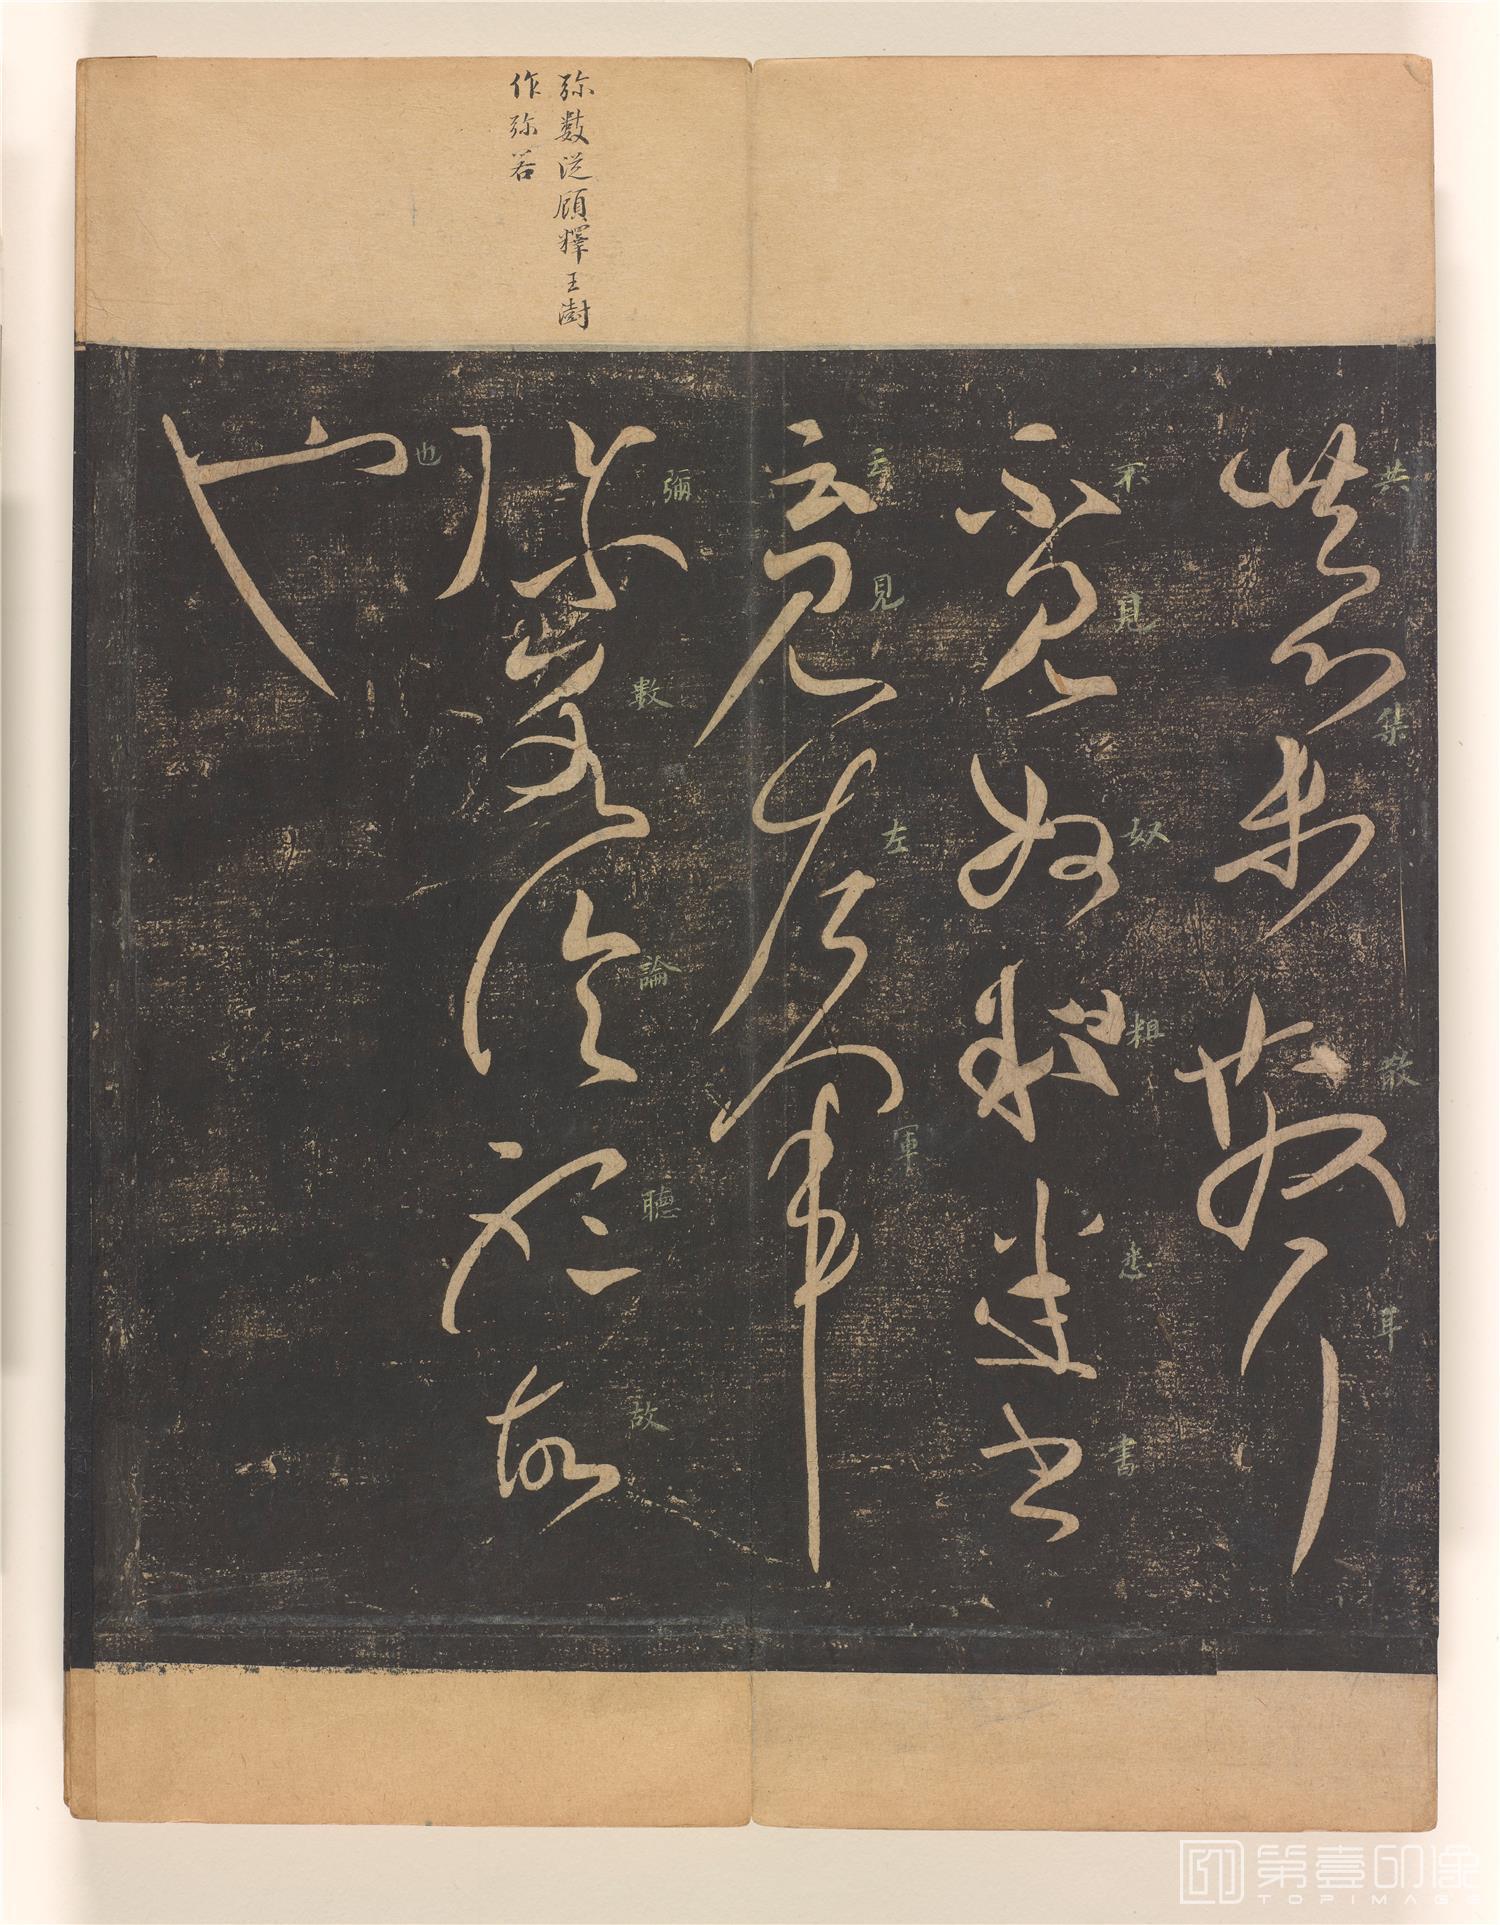 弥數從顧釋王澍
作弥若
共集散耳
不見奴粗悉書
云見左軍
彌數論聽故
也
第壹印像
TOPIMAGE